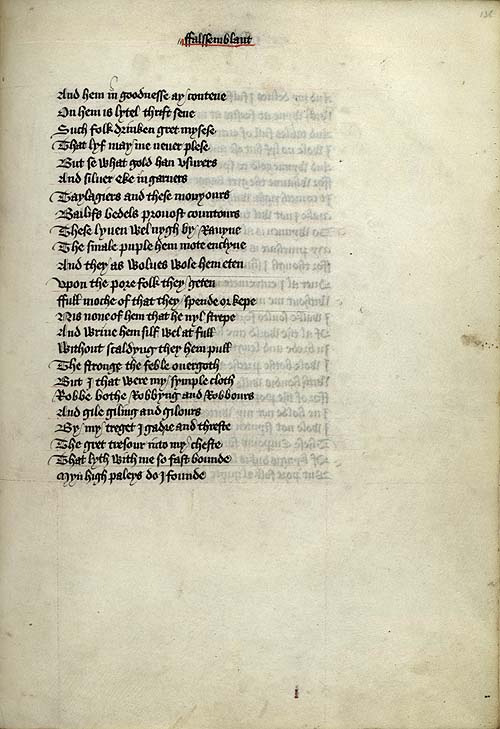 ffalssemblant
And hem in goodnesse ay contene
On hem is lytel thrift sene
Such folk drinken gret mysese
That lyf may me neuer plese
But se what gold han vsurers
And siluer eke in garners
Taylagiers and these monyours
Bailifs bedels prouost countours
These lyuen wel nygh by Rauyne
The smale puple hem mote enclyne
And they as wolues wole hem eten
Vpon the pore folk they geten
ffull moche of that they spende or kepe
Nis none of hem that he nyl strepe
And wrine hem silf wel at full
Without scaldyng they hem pull
The stronge the feble ouergoth
But I that were my symple cloth
Robbe bothe Robbyng and Robbours
And gile giling and gilours
By my treget I gadre and threste
The gret tresour in to my cheste
That lyth with me so fast bounde
Myn high paleys do I founde